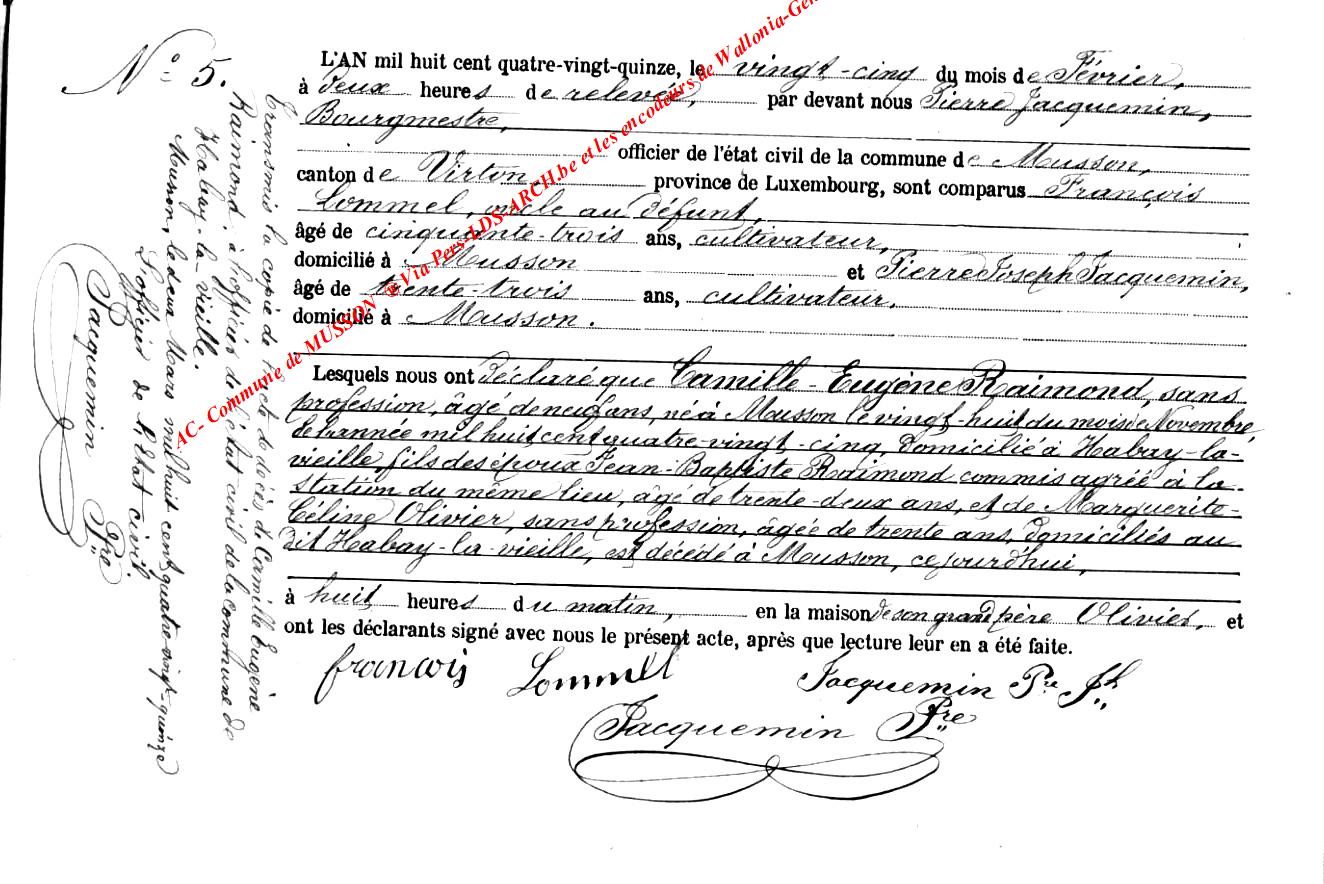 N° 5.
L'AN mil huit cent quatre-vingt-quinze, le vingt-cinq du mois de Février,
à deux heures de relevée, par devant nous Pierre Jacquemin,
Bourgmestre,
officier de l'état civil de la commune de Musson,
canton de Virton province de Luxembourg, sont comparus François
Lommel, oncle au défunt,
âgé de cinquante-trois ans, cultivateur,
domicilié à Musson et Pierre Joseph Jacquemin,
âgé de trente-trois ans, cultivateur,
domicilié à Musson.
Lesquels nous ont déclaré que Camille-Eugène Raimond, sans
profession, âgé de neuf ans, né à Musson le vingt-huit du mois de Novembre
de l'année mil huit cent quatre-vingt-cinq, domicilié à Habay-la-
vieille, fils des époux Jean-Baptiste Raimond commis agréé à la
station du même lieu, âgé de trente-deux ans, et de Marguerite-
Céline Olivier, sans profession, âgée de trente ans, domiciliés au
dit Habay-la-vieille, est décédé à Musson, ce jourd'hui,
à huit heures du matin, en la maison de son grand père Olivier, et
ont les déclarants signé avec nous le présent acte, après que lecture leur en a été faite.
françois Lommel Jacquemin Pre Jh
Jacquemin Pre
Transmis la copie de l'acte de décès de Camille Eugène
Raimond, à l'officier de l'état civil de la commune de
Habay-la-vieille.
Musson, le deux Mars mil huit cent quatre-vingt-quinze
L'officier de l'Etat civil,
Jacquemin Pre
AC- Commune de MUSSON @ Via Pers-LDS-ARCH.be et les encodeurs de Wallonia-Gen